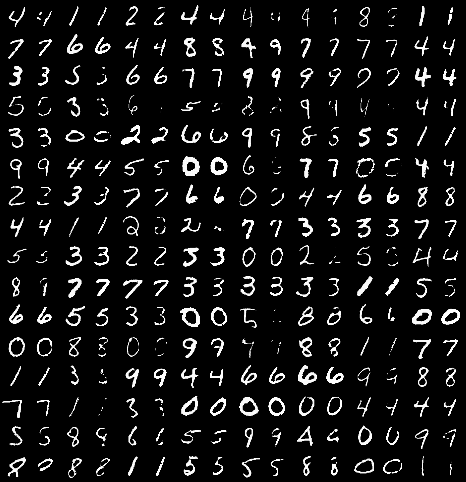 4 4 1 1 2 2 4 4 4 4 8 1 1
7 7 6 6 4 4 8 8 4 9 7 7 7 7 4 4
3 3 5 3 6 6 7 7 9 9 9 9 7 7 4 4
5 5 3 3 6 5 5 8 9 9 4 4 4
3 3 0 0 2 2 6 6 9 9 8 5 5 5 1 1
9 9 4 4 5 5 0 0 6 7 7 0 0 4 4
2 2 3 3 7 7 6 6 0 0 4 4 6 6 8 8
4 4 1 1 2 2 2 7 7 3 3 3 3 7 7
5 5 3 3 2 2 3 3 0 0 2 5 5 4 4
8 9 7 7 7 7 3 3 3 3 3 3 1 1 5 5
6 6 5 5 3 3 0 0 5 8 8 6 6 0 0
0 0 8 8 0 0 9 9 7 7 8 8 1 1 7 7
1 1 3 3 9 9 4 4 6 6 6 6 9 9 8 8
7 7 1 1 3 3 0 0 0 0 0 0 4 4 4 4
5 5 8 8 6 6 5 5 9 9 4 4 0 0 9 9
8 8 8 1 1 5 5 5 5 8 8 0 0 1 1